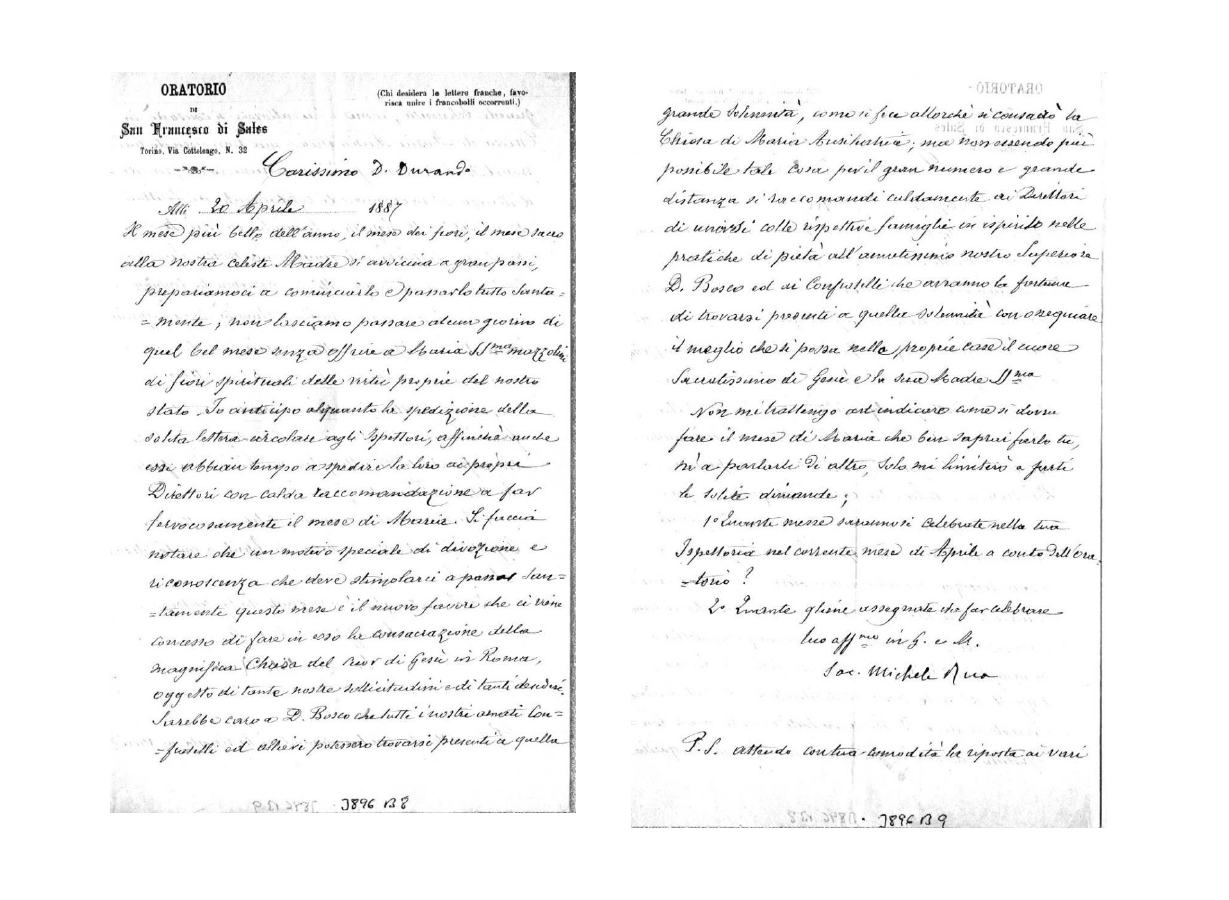 ORATORIO
DI
San Francesco di Sales
Torino, Via Cottolengo, N. 32
(Chi desidera le lettere franche, favo-
risca unire i francobolli occorrenti.)
Carissimo D. Durando
Alli 20 Aprile 1887
Il mese più bello dell'anno, il mese dei fiori, il mese sacro
alla nostra celeste Madre si avvicina a gran passi,
prepariamoci a cominciarlo e passarlo tutto santa=
=mente; non lasciamo passare alcun giorno di
quel bel mese senza offrire a Maria SSma mazzolini
di fiori spirituali delle virtù proprie del nostro
stato. Io anticipo alquanto la spedizione della
solita lettera circolare agli Ispettori, affinchè anche
essi abbian tempo a spedire la loro ai propri
Direttori con calda raccomandazione a far
fervorosamente il mese di Maria. Si faccia
notare che un motivo speciale di divozione e
riconoscenza che deve stimolarci a passar san=
=tamente questo mese è il nuovo favore che ci viene
concesso di fare in esso la consacrazione della
magnifica Chiesa del Cuor di Gesù in Roma,
oggetto di tante nostre sollecitudini e di tanti desideri.
Sarebbe caro a D. Bosco che tutti i nostri amati con=
=fratelli ed allievi potessero trovarsi presenti a quella
J896 B8
grande solennità, come si fece allorchè si consacrò la
Chiesa di Maria Ausiliatrice, ma non essendo più
possibile tale cosa pel gran numero e grande
distanza si raccomandi caldamente ai Direttori
di unirsi colle rispettive famiglie in ispirito nelle
pratiche di pietà all'amatissimo nostro Superiore
D. Bosco ed ai Confratelli che avranno la fortuna
di trovarsi presenti a quella solennità con ossequiare
il meglio che si possa nelle proprie case il cuore
Sacratissimo di Gesù e la sua Madre SSma
Non mi trattengo ad indicare come si dovrà
fare il mese di Maria che ben saprai farlo tu,
nè a parlarti di altro, solo mi limiterò a farti
le solite dimande;
1° Quante messe saranno si celebrate nella tua
Ispettoria nel corrente mese di Aprile a conto dell'Ora=
=torio?
2° Quante gliene assegnate da far celebrare
tuo affmo in G. e M.
Sac. Michele Rua
P.S. attendo con tua comodità la riposta ai vari
J896 B9